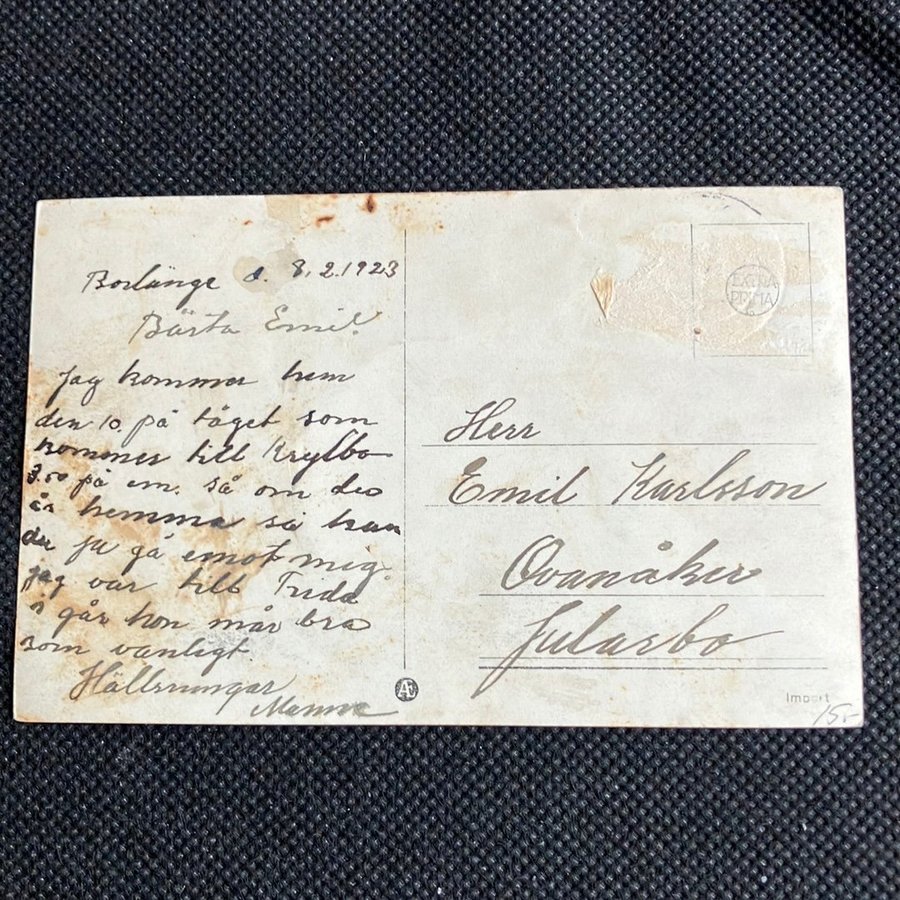 Borlänge d. 8.2.1923
Bästa Emil!
Jag kommer hem
den 10. på tåget som
kommer till Krylbo
3.00 på em. så om du
är hemma så kan
du ju gå emot mig.
jag var till Frida
i går hon mår bra
som vanligt.
Hällsningar
Mamma
EXTRA
PRIMA
Herr
Emil Karlsson
Ovanåker
Jularbo
AE
Import
15.-